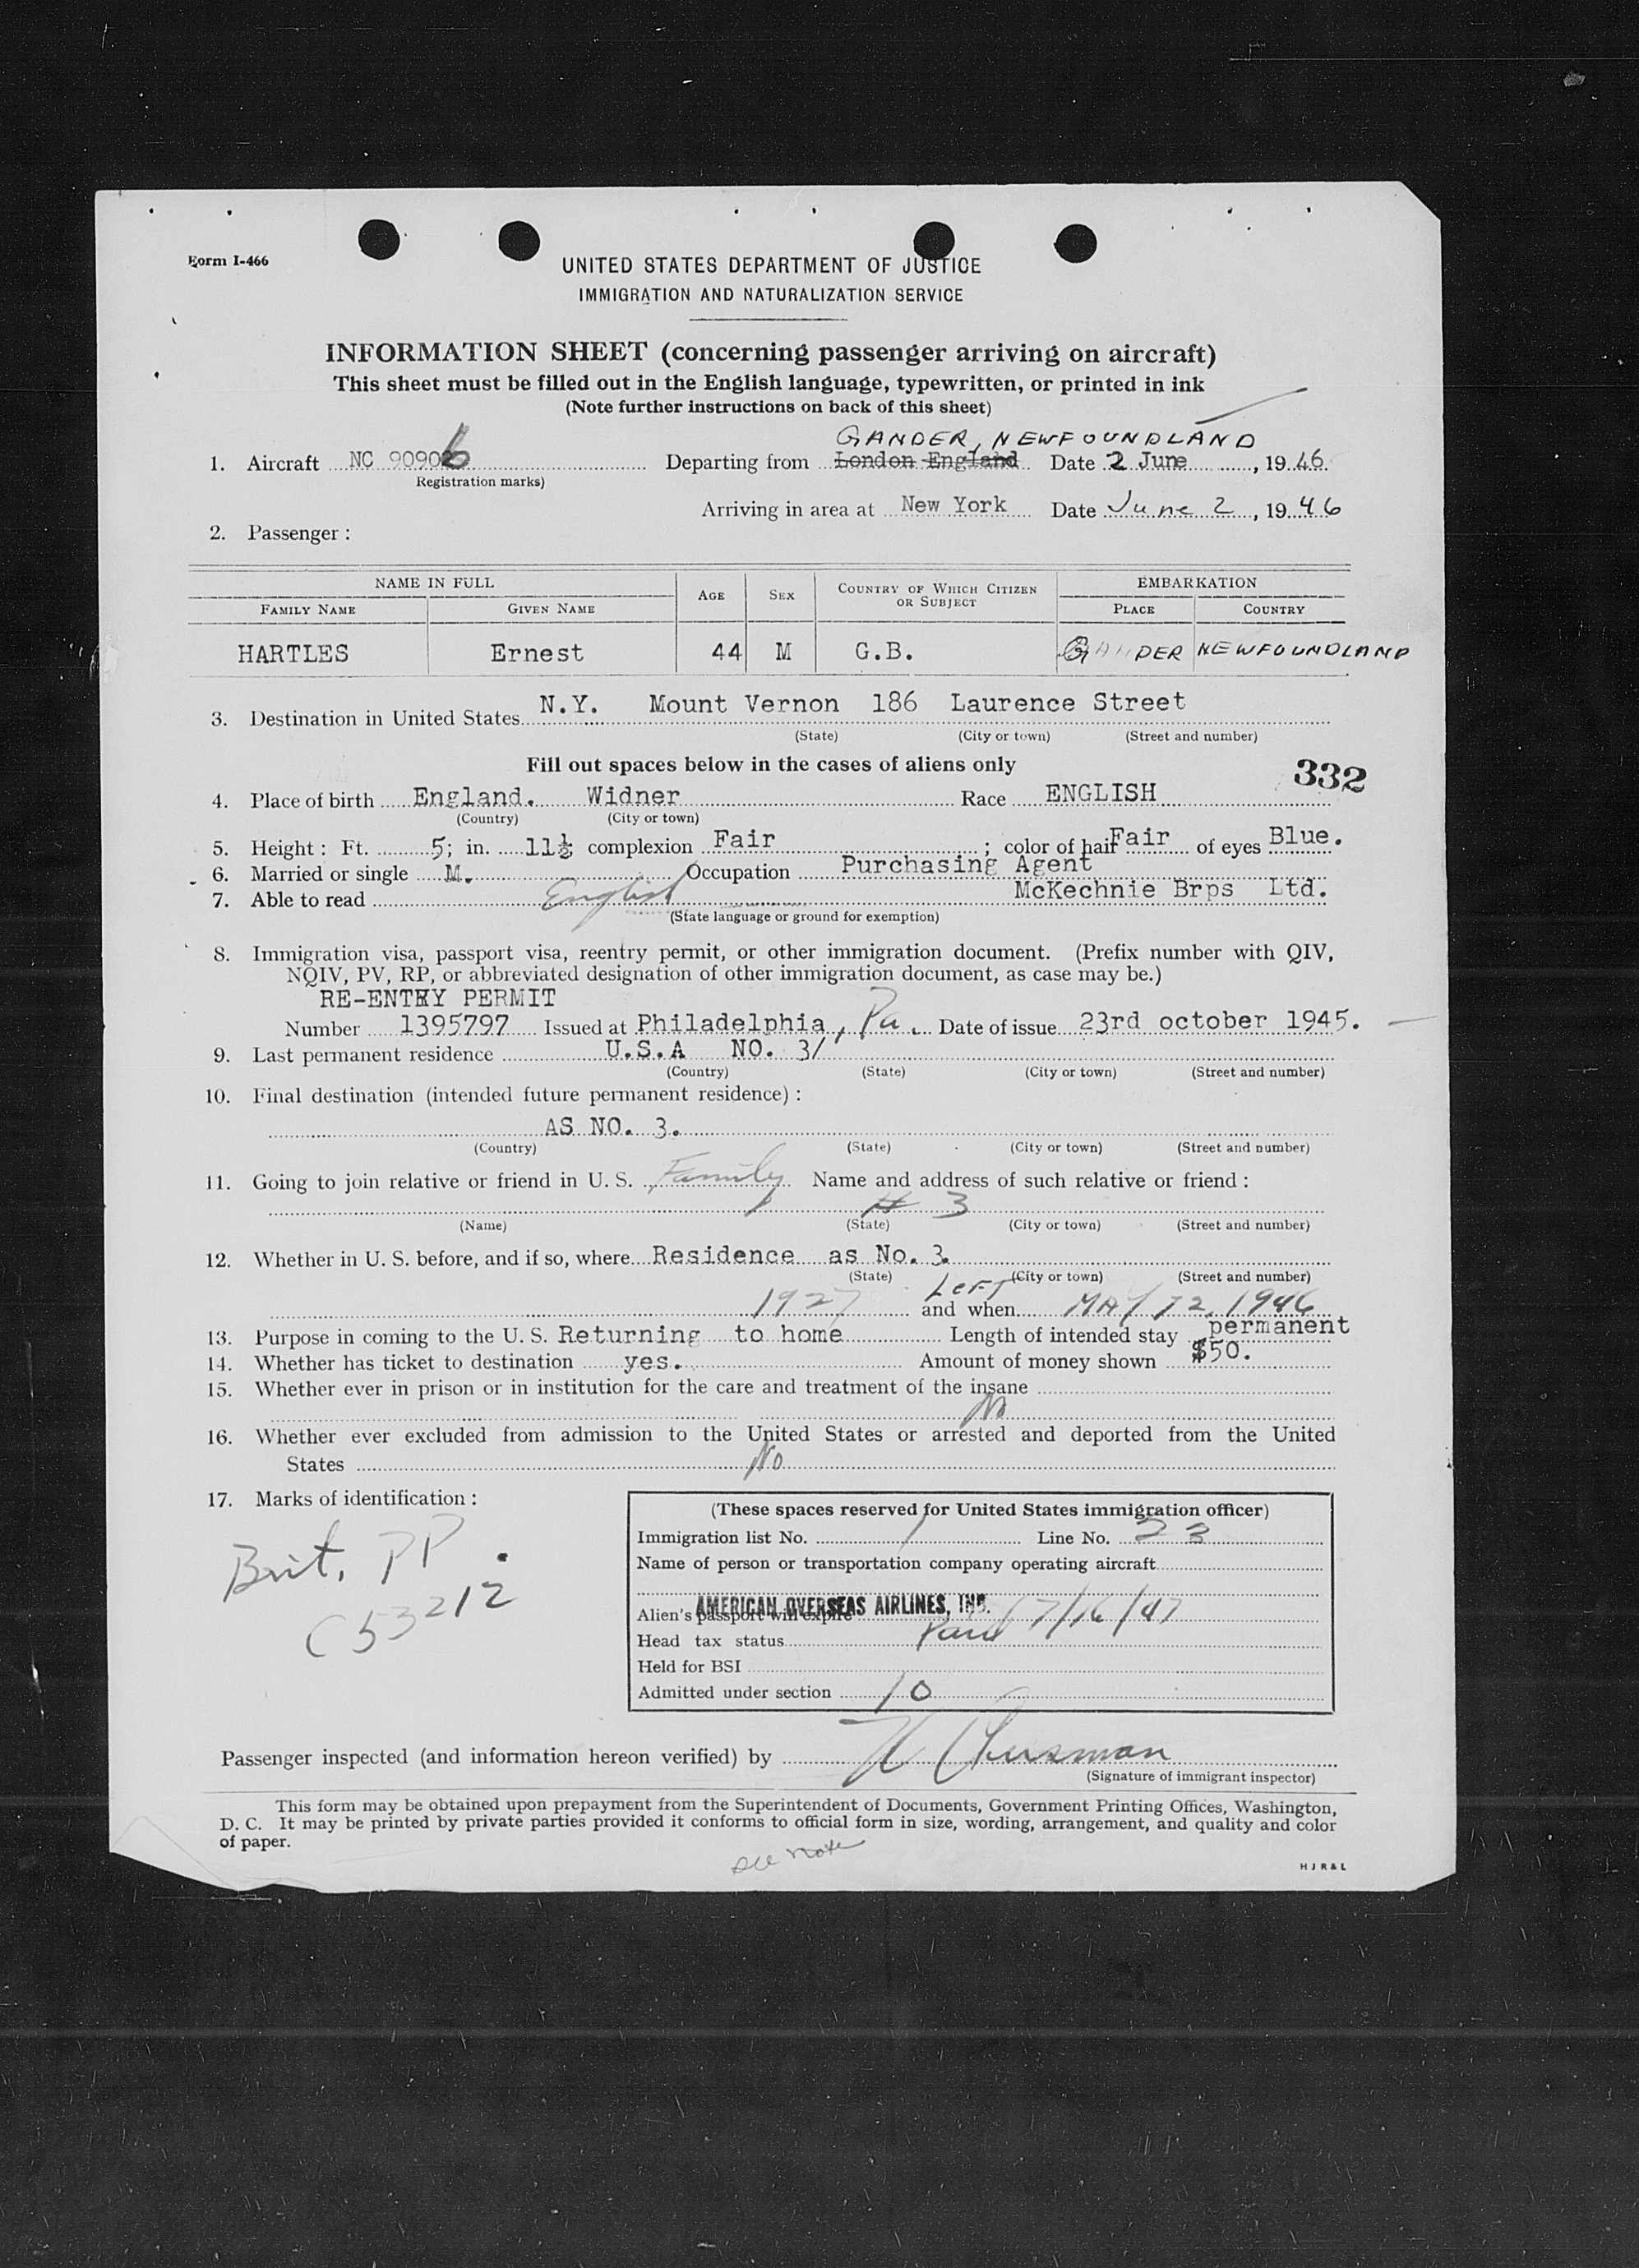 Form I-466
UNITED STATES DEPARTMENT OF JUSTICE
IMMIGRATION AND NATURALIZATION SERVICE
INFORMATION SHEET (concerning passenger arriving on aircraft)
This sheet must be filled out in the English language, typewritten, or printed in ink
(Note further instructions on back of this sheet)
GANDER, NEWFOUNDLAND
1. Aircraft NC 90906 Departing from London England Date 2 June, 1946
Registration marks)
Arriving in area at New York Date June 2, 1946
2. Passenger:
NAME IN FULL AGE SEX COUNTRY OF WHICH CITIZEN OR SUBJECT EMBARKATION
FAMILY NAME GIVEN NAME PLACE COUNTRY
HARTLES Ernest 44 M G.B. GANDER NEWFOUNDLAND
3. Destination in United States N.Y. Mount Vernon 186 Laurence Street
(State) (City or town) (Street and number)
Fill out spaces below in the cases of aliens only
332
4. Place of birth England. Widner Race ENGLISH
(Country) (City or town)
5. Height: Ft. 5; in. 11½ complexion Fair; color of hair Fair of eyes Blue.
6. Married or single M. Occupation Purchasing Agent
7. Able to read English McKechnie Brps Ltd.
(State language or ground for exemption)
8. Immigration visa, passport visa, reentry permit, or other immigration document. (Prefix number with QIV,
NQIV, PV, RP, or abbreviated designation of other immigration document, as case may be.)
RE-ENTRY PERMIT
Number 1395797 Issued at Philadelphia, Pa. Date of issue 23rd october 1945.
9. Last permanent residence U.S.A NO. 3/
(Country) (State) (City or town) (Street and number)
10. Final destination (intended future permanent residence):
AS NO. 3.
(Country) (State) (City or town) (Street and number)
11. Going to join relative or friend in U. S. Family Name and address of such relative or friend:
# 3
(Name) (State) (City or town) (Street and number)
12. Whether in U. S. before, and if so, where Residence as No. 3.
(State) (City or town) (Street and number)
1927 LEFT and when MAY 12, 1946
13. Purpose in coming to the U. S. Returning to home Length of intended stay permanent
14. Whether has ticket to destination yes. Amount of money shown $50.
15. Whether ever in prison or in institution for the care and treatment of the insane
No
16. Whether ever excluded from admission to the United States or arrested and deported from the United
States No
17. Marks of identification:
Brit. PP.
C53212
(These spaces reserved for United States immigration officer)
Immigration list No. 1 Line No. 23
Name of person or transportation company operating aircraft
AMERICAN OVERSEAS AIRLINES, INC.
Alien's passport will expire 7/16/47
Head tax status Paid
Held for BSI
Admitted under section 10
Passenger inspected (and information hereon verified) by
(Signature of immigrant inspector)
This form may be obtained upon prepayment from the Superintendent of Documents, Government Printing Offices, Washington,
D. C. It may be printed by private parties provided it conforms to official form in size, wording, arrangement, and quality and color
of paper.
see note
H J R & L